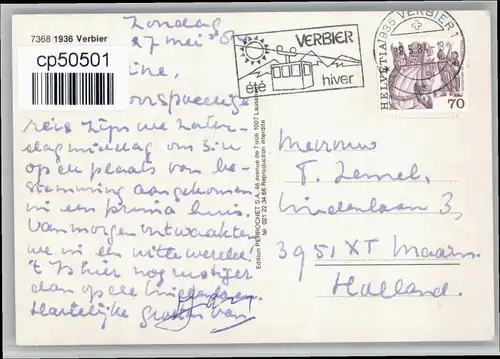 7368 1936 Verbier
cp50501
Zondag
27 mei
ine,
voorspoedige
reis zijn we zater-
dagmiddag om 3 u
op de plaats van be-
stemming aangekomen
in een prima huis.
Vanmorgen ontwaakten
we in een witte wereld!
't Is hier nog rustiger
dan op de Lindenlaan.
Hartelijke groeten van
Edition PERROCHET S.A., 46 avenue de Tivoli 1007 Lausanne
Tél. 021 22.34.66 Reproduction interdite
VERBIER
été hiver
1936 VERBIER 1
HELVETIA
70
Mevrouw
T. Zemel,
Lindenlaan 3,
3951 XT Maarn.
Holland.